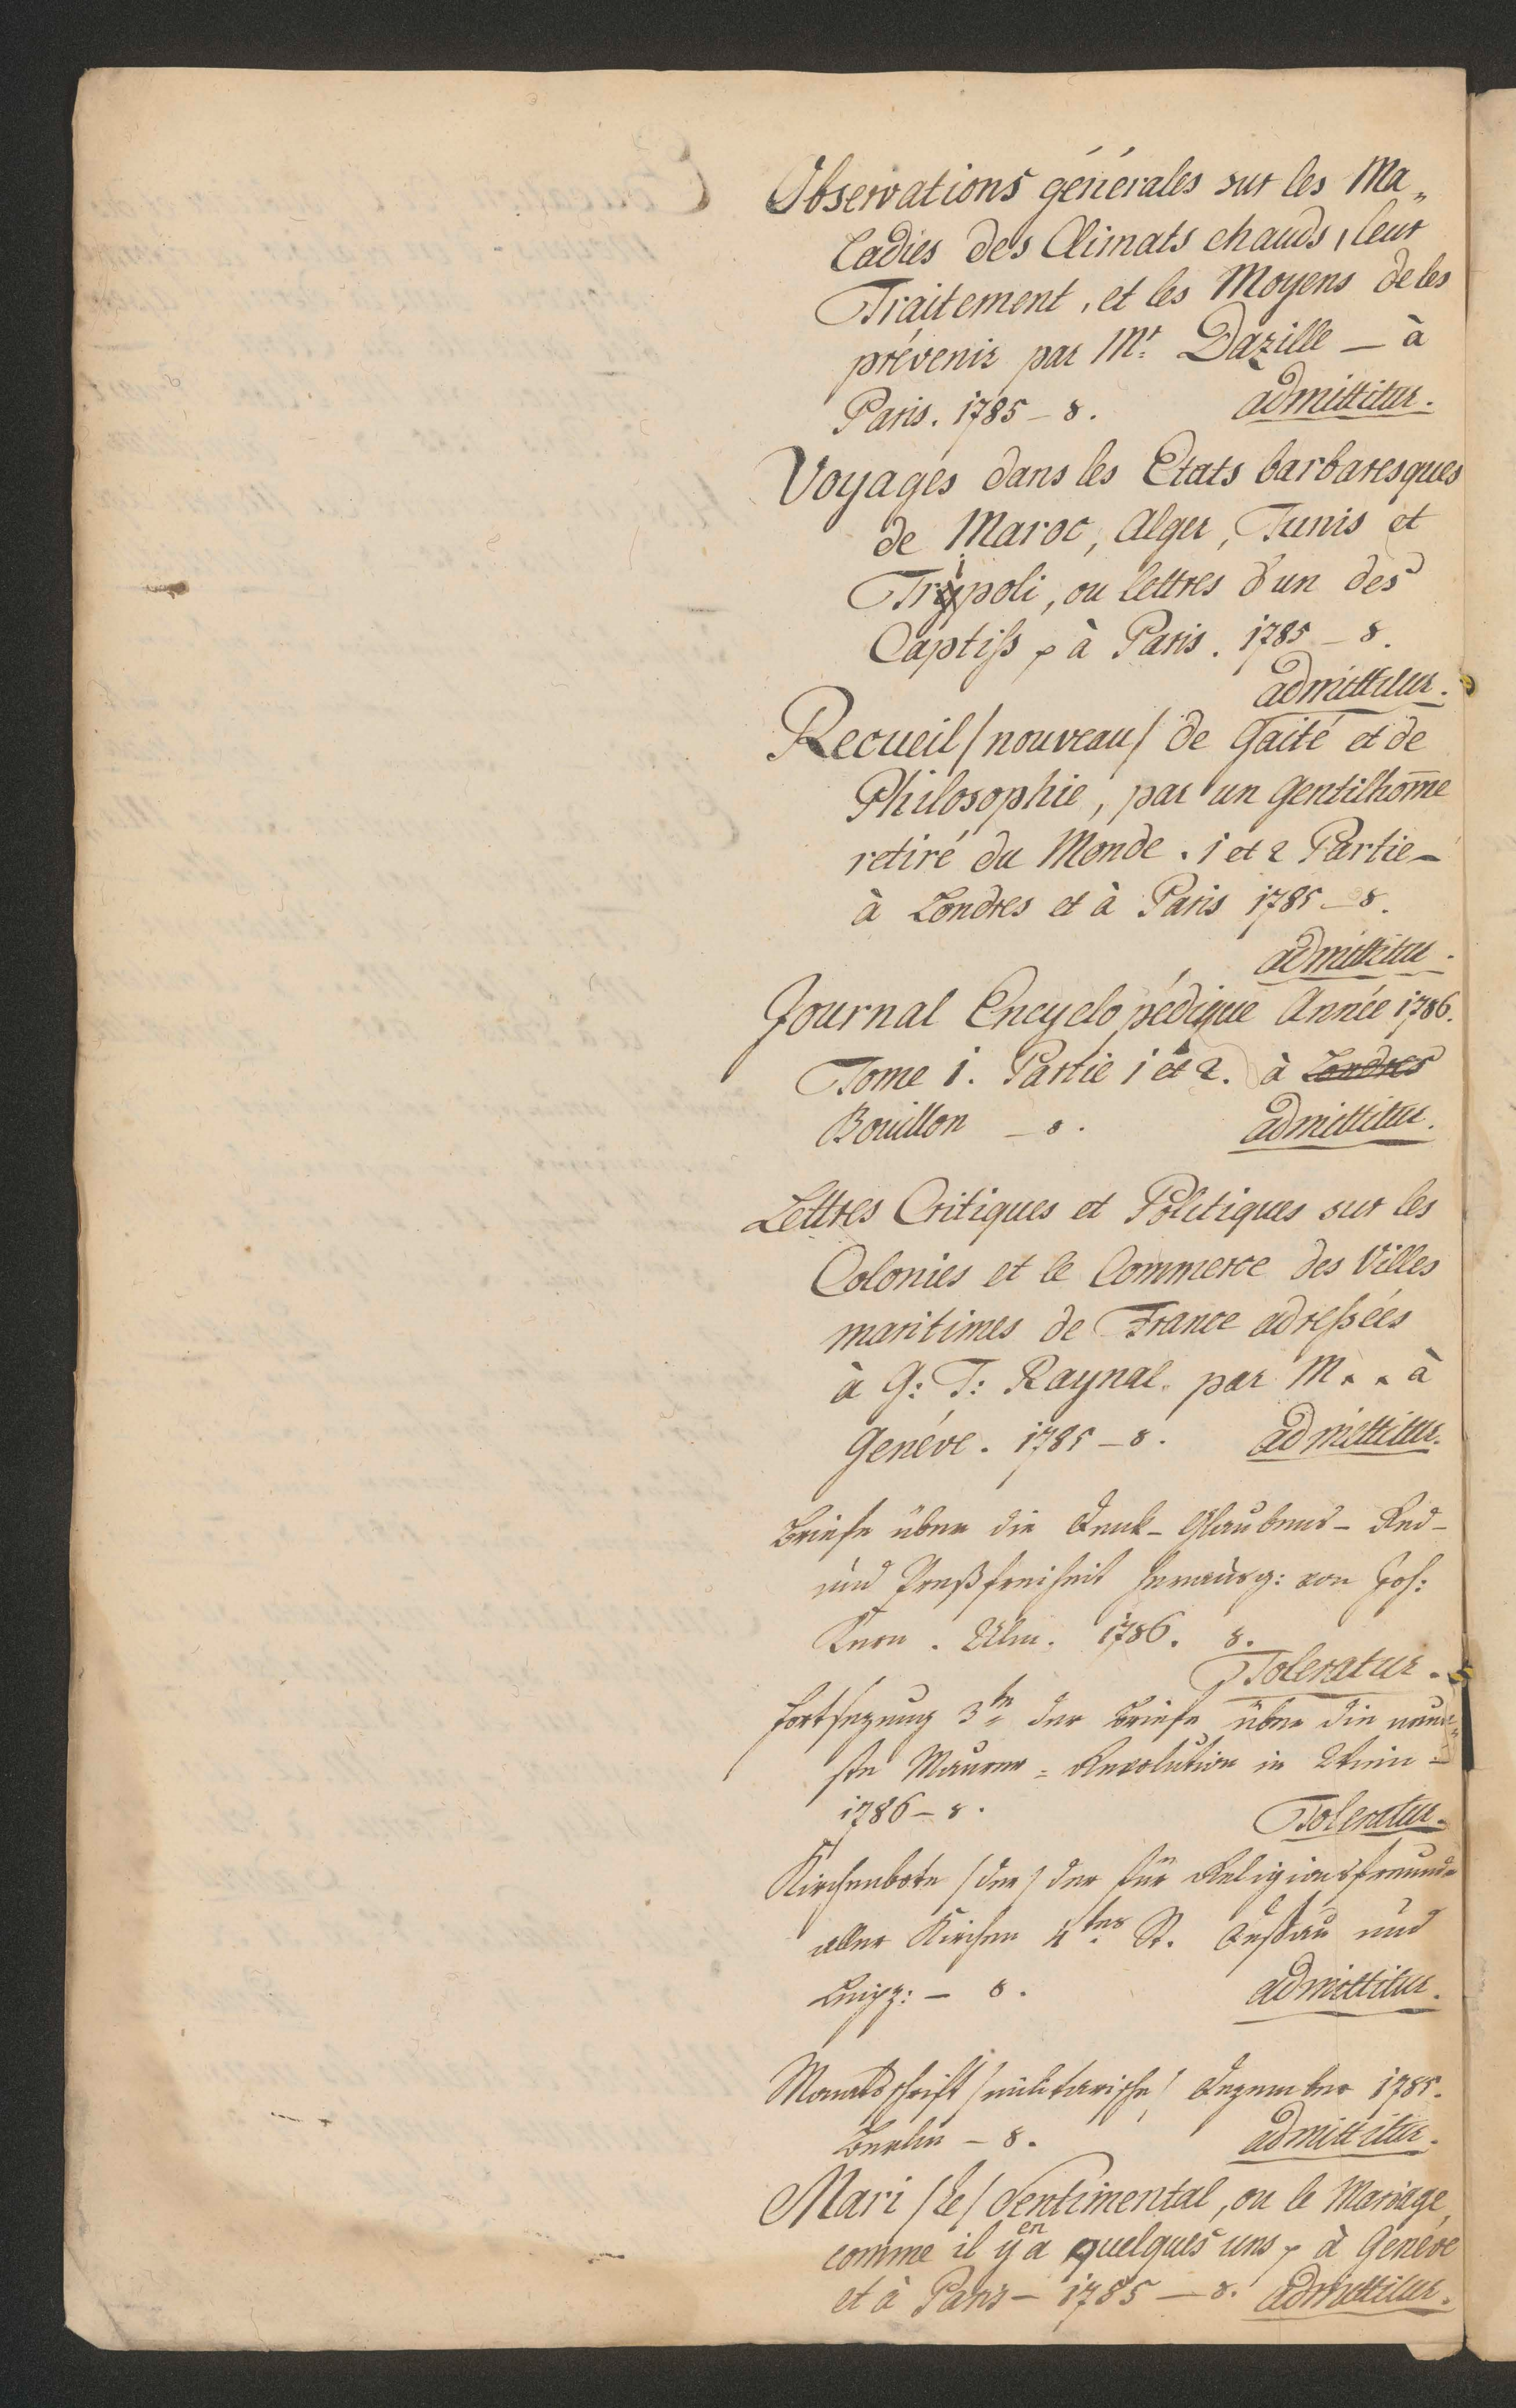 Observations générales sur les Ma„
ladies des Climats chauds, leur
Traitement, et les Moyens de les
prévenir par Mr. Dazille — à
Paris. 1785 — 8. admittitur.
Voyages dans les Etats barbaresques
de Maroc, Alger, Tunis et
Tripoli, ou lettres d'un des
Captifs p à Paris. 1785 — 8.
admittitur.
Recueil /nouveau/ de Gaité et de
Philosophie, par un Gentilhom̄e
retiré du Monde. 1 et 2 Partie —
à Londres et à Paris 1785 — 8.
admittitur.
Journal Encyclopédique Année 1786.
Tome 1. Partie 1 et 2. à Londres
Bouillon — 8. admittitur.
Lettres Critiques et Politiques sur les
Colonies et le Commerce des Villes
maritimes de France adreßées
à G: T: Raynal par M. . à
Genéve. 1785 — 8. admittitur.
Briefe über die Denk- Glaubens- Red-
und Preßfreiheit herausg: von Joh:
Kern. Ulm. 1786. 8.
Toleratur.
Fortsezung 3te der Briefe über die neue„
ste Maurer = Revolution in Wien —
1786 — 8. Toleratur.
Kirchenbote /der/ der für Religionsfreunde
aller Kirchen 4tes St. Deßau und
Leipz: — 8. admittitur.
Monatsschrift /militarische/ Dezember 1785.
Berlin — 8. admittitur.
Mari /le/ Sentimental, ou le Mariage,
comme il y en a quelques uns p à Genéve
et à Paris — 1785 — 8. admittitur.